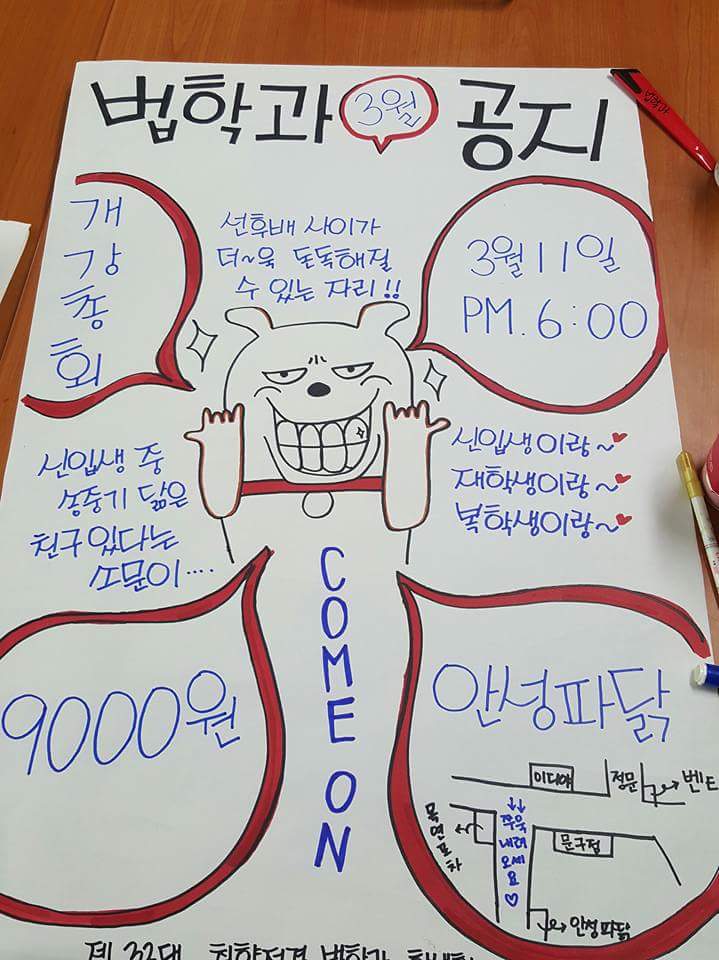 법학과 3월 공지
법학과
개강총회
선후배 사이가
더~욱 돈독해질
수 있는 자리!!
3월 11일
PM. 6:00
신입생 중
송중기 닮은
친구있다는
소문이....
신입생이랑~♥
재학생이랑~♥
복학생이랑~♥
COME ON
9000원
안성파닭
이디야
정문
벤트
목연포차
쭈욱
내려
오세
요♡
문구점
안성파닭